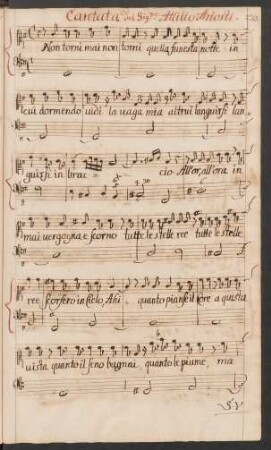 Cantata del Sig.r Attilio Ariosti
Non torni mai non torni quella funesta notte in
cui dormendo vidi la vaga mia altrui languirsi lan
guirsi in brac cio Allor, all'ora in
mai vergogna e scorno tutte le stelle ree tutte le stelle
ree scorsero in Cielo, Ahi, quanto pianse il core a questa
vista quanto il seno bagnai quanto le piume, ma